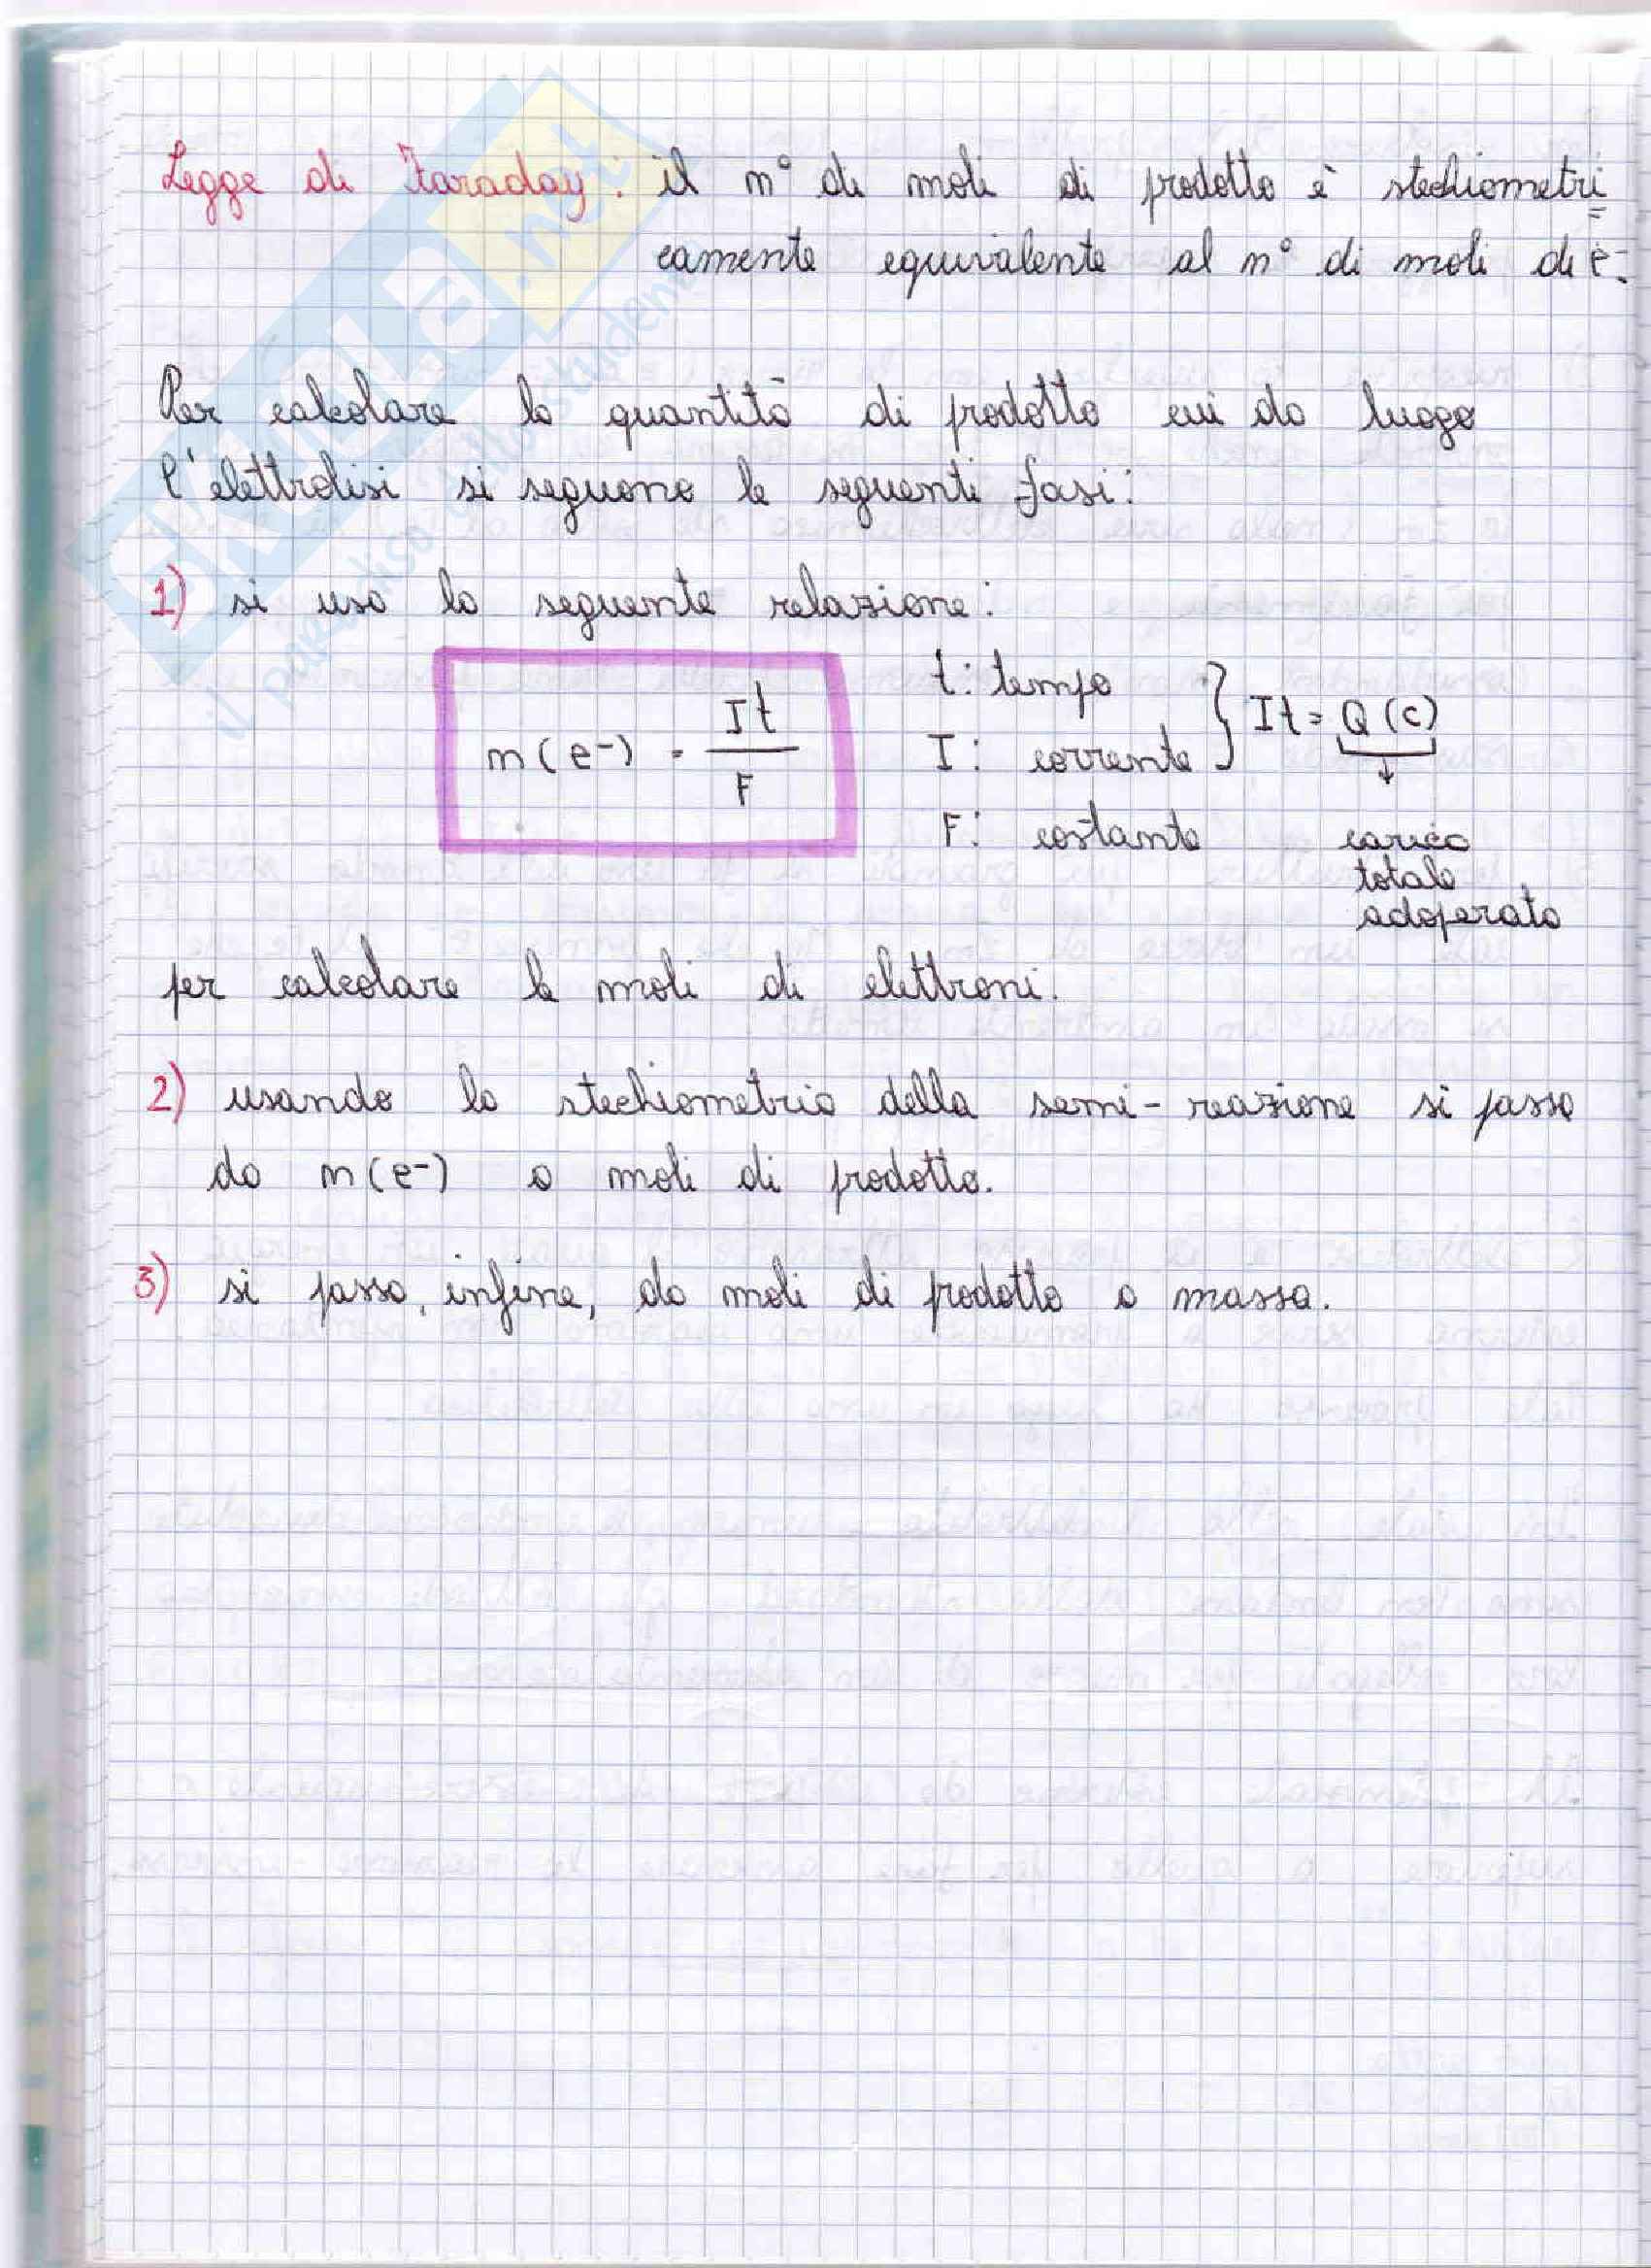 Legge di Faraday: il n° di moli di prodotto è stechiometri
camente equivalente al n° di moli di e⁻.
Per calcolare la quantità di prodotto cui da luogo
l'elettrolisi si seguono le seguenti fasi:
1) si usa la seguente relazione:
n(e⁻) = It / F
t: tempo
I: corrente
} It = Q (C)
F: costante
carica
totale
adoperata
per calcolare le moli di elettroni.
2) usando la stechiometria della semi-reazione si passa
da n(e⁻) a moli di prodotto.
3) si passa, infine, da moli di prodotto a massa.
skuola.net
il paradiso dello studente